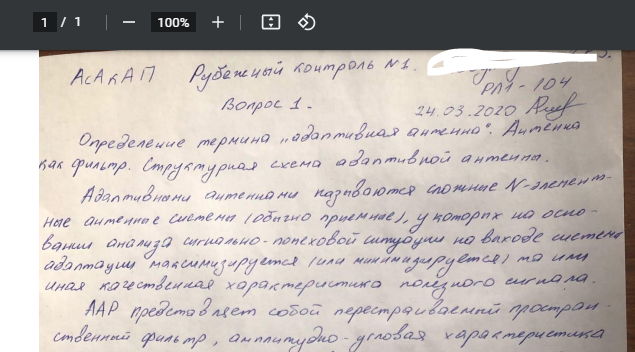 1 / 1
100%
АсАкАП Рубежный контроль №1.
РЛ1-104
Вопрос 1. 24.03.2020
Определение термина „адаптивная антенна". Антенна
как фильтр. Структурная схема адаптивной антенны.
Адаптивными антеннами называются сложные N-элемент-
ные антенные системы (обычно приемные), у которых на осно-
вании анализа сигнально-помеховой ситуации на выходе системы
адаптации максимизируется (или минимизируется) та или
иная качественная характеристика полезного сигнала.
ААР представляет собой перестраиваемый простран-
ственный фильтр, амплитудно-угловая характеристика